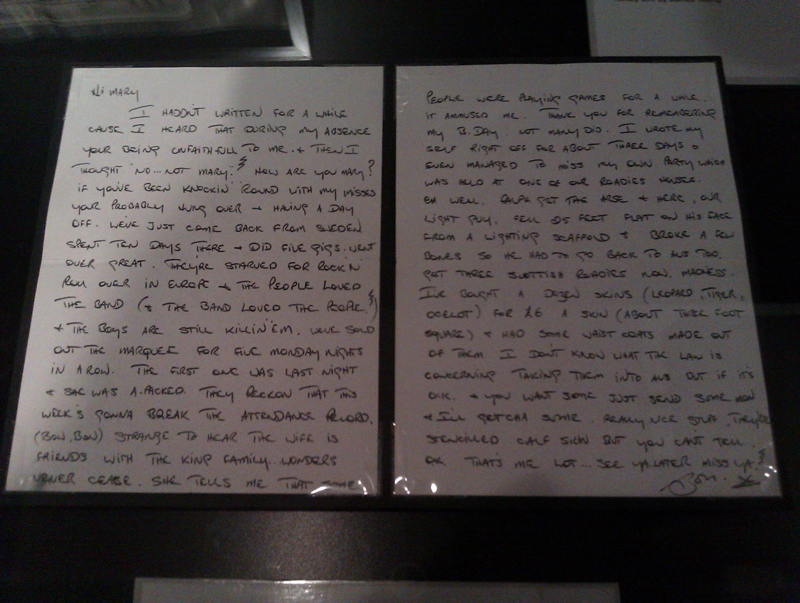 Hi MARY
I HADDN'T WRITTEN FOR A WHILE
CAUSE I HEARD THAT DURING MY ABSENCE
YOUR BEING UNFAITHFULL TO ME. & THEN I
THOUGHT "NO... NOT MARY." HOW ARE YOU MARY?
IF YOU'VE BEEN KNOCKIN' ROUND WITH MY MISSES
YOUR PROBABLY HUNG OVER & HAVING A DAY
OFF. WE'VE JUST COME BACK FROM SWEDEN
SPENT TEN DAYS THERE & DID FIVE GIGS. WENT
OVER GREAT. THEY'RE STARVED FOR ROCK 'N'
ROLL OVER IN EUROPE & THE PEOPLE LOVED
THE BAND (& THE BAND LOVED THE PEOPLE)
& THE BOYS ARE STILL KILLIN' EM. WE'VE SOLD
OUT THE MARQUEE FOR FIVE MONDAY NIGHTS
IN A ROW. THE FIRST ONE WAS LAST NIGHT
& SHE WAS A-PACKED. THEY RECKON THAT THIS
WEEK'S GONNA BREAK THE ATTENDANCE RECORD.
(BOW, BOW) STRANGE TO HEAR THE WIFE IS
FRIENDS WITH THE KING FAMILY. WONDERS
NEVER CEASE. SHE TELLS ME THAT SOME
PEOPLE WERE PLAYING GAMES FOR A WHILE.
IT AMMUSED ME. THANK YOU FOR REMEMBERING
MY B.DAY. NOT MANY DID. I WROTE MY
SELF RIGHT OFF FOR ABOUT THREE DAYS &
EVEN MANAGED TO MISS MY OWN PARTY WHICH
WAS HELD AT ONE OF OUR ROADIES HOUSE.
OH WELL. RALPH GOT THE ARSE & HERC, OUR
LIGHT GUY, FELL 25 FEET FLAT ON HIS FACE
FROM A LIGHTING SCAFFOLD & BROKE A FEW
BONES SO HE HAD TO GO BACK TO AUS TOO.
GOT THREE SCOTTISH ROADIES NOW. MADNESS.
I'VE BOUGHT A DOZEN SKINS (LEOPARD, TIGER,
OCELOT) FOR £6 A SKIN (ABOUT THREE FOOT
SQUARE) & HAD SOME WAIST COATS MADE OUT
OF THEM I DON'T KNOW WHAT THE LAW IS
CONCERNING TAKING THEM INTO AUS BUT IF IT'S
O.K. & YOU WANT SOME JUST SEND SOME MON
& I'LL GETCHA SOME. REALLY NICE STUFF. THEY'RE
STENCILLED CALF SKIN BUT YOU CAN'T TELL.
OK. THAT'S ME LOT... SEE YA LATER MISS YA
Bon. X